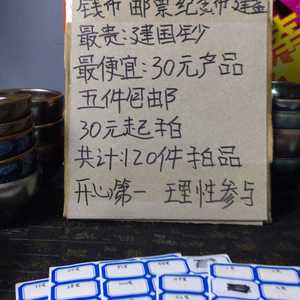 钱币邮票纪念币建盏
最贵:建国钞
最便宜:30元产品
五件包邮
30元起拍
共计:120件拍品
开心第一 理性参与